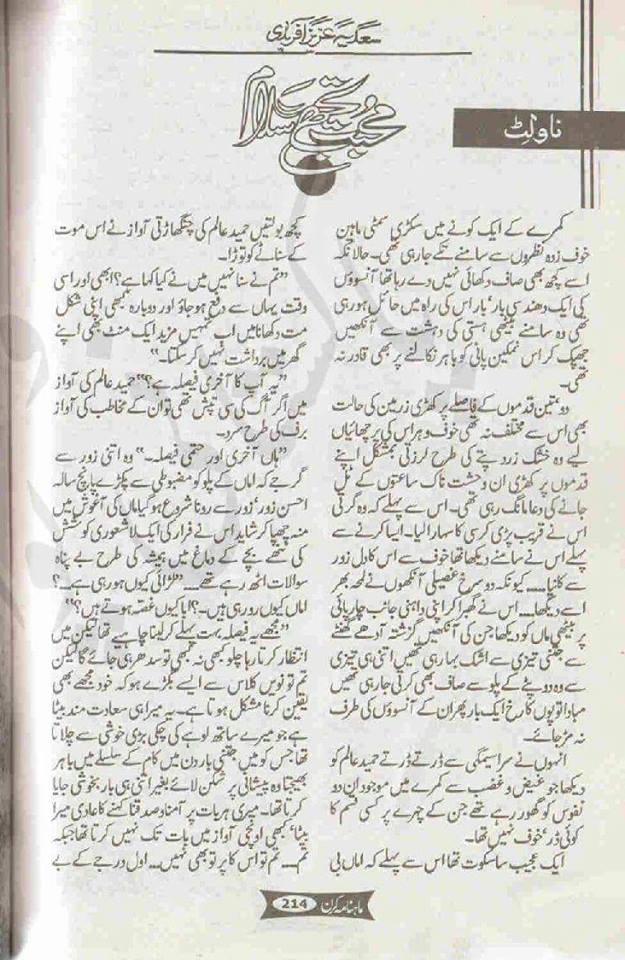 سعدیہ عزیز آفریدی
محبت تجھے سلام
ناولٹ
کمرے کے ایک کونے میں سکڑی سمٹی ماہین
خوف زدہ نظروں سے سامنے تکے جا رہی تھی۔ حالانکہ
اسے کچھ بھی صاف دکھائی نہیں دے رہا تھا آنسوؤں
کی ایک دھند سی بار' بار اس کی راہ میں حائل ہو رہی
تھی وہ سامنے بیٹھی ہستی کی دہشت سے آنکھیں
جھپک کر اس نمکین پانی کو باہر نکالنے پر بھی قادر نہ
تھی۔
دو' تین قدموں کے فاصلے پر کھڑی زرمین کی حالت
بھی اس سے مختلف نہ تھی خوف و ہراس کی پرچھائیاں
لیے وہ خشک زرد پتے کی طرح لرزتی بمشکل اپنے
قدموں پر کھڑی ان وحشت ناک ساعتوں کے ٹل
جانے کی دعا مانگ رہی تھی۔ اس سے پہلے کہ وہ گرتی
اس نے قریب پڑی کرسی کا سہارا لیا۔ ایسا کرنے سے
پہلے اس نے سامنے دیکھا تھا خوف سے اس کا دل زور
سے کانپا.... کیونکہ دو سرخ غصیلی آنکھوں نے لمحہ بھر
اسے دیکھا.... اس نے گھبرا کر اپنی داہنی جانب چارپائی
پر بیٹھی ماں کو دیکھا جن کی آنکھیں گزشتہ آدھے گھنٹے
سے جتنی تیزی سے اشک بہا رہی تھیں اتنی ہی تیزی
سے وہ دوپٹے کے پلو سے صاف بھی کرتی جا رہی تھیں
مبادا توپوں کا رخ ایک بار پھر ان کے آنسوؤں کی طرف
نہ مڑ جائے۔
انہوں نے سراسیمگی سے ڈرتے ڈرتے حمید عالم کو
دیکھا جو غیض و غضب سے کمرے میں موجود ان دو
نفوس کو گھور رہے تھے جن کے چہرے پر کسی قسم کا
کوئی ڈر' خوف نہیں تھا۔
ایک عجیب سا سکوت تھا اس سے پہلے کہ اماں بی
کچھ بولتیں حمید عالم کی چنگھاڑتی آواز نے اس موت
کے سناٹے کو توڑا۔
"تم نے سنا نہیں میں نے کیا کہا ہے؟ ابھی اور اسی
وقت یہاں سے دفع ہو جاؤ اور دوبارہ کبھی اپنی شکل
مت دکھانا میں اب تمہیں مزید ایک منٹ بھی اپنے
گھر میں برداشت نہیں کر سکتا۔"
"یہ آپ کا آخری فیصلہ ہے؟" حمید عالم کی آواز
میں اگر آگ کی سی تپش تھی تو ان کے مخاطب کی آواز
برف کی طرح سرد۔
"ہاں آخری اور حتمی فیصلہ۔" وہ اتنی زور سے
گرجے کہ اماں کے پلو کو مضبوطی سے پکڑے پانچ سالہ
احسن زور' زور سے رونا شروع ہو گیا ماں کی آغوش میں
منہ چھپا کر شاید اس نے فرار کی ایک لاشعوری کوشش
کی ننھے بچے کے دماغ میں ہمیشہ کی طرح بے پناہ
سوالات اٹھ رہے تھے.... "لڑائی کیوں ہو رہی ہے...؟
اماں کیوں رو رہی ہیں۔؟ ابا کیوں غصہ ہوتے ہیں؟"
"مجھے یہ فیصلہ بہت پہلے کر لینا چاہیے تھا لیکن میں
انتظار کرتا رہا چلو بھی نہ کبھی تو سدھر ہی جائے گا لیکن
تم تو نویں کلاس سے ایسے بگڑے ہو کہ خود مجھے بھی
یقین کرنا مشکل ہوتا ہے۔ یہ میرا ہی سعادت مند بیٹا
ہے جو میرے ساتھ لوہے کی چکی بڑی خوشی سے چلاتا
تھا جس کو میں جتنی بار دن میں کام کے سلسلے میں باہر
بھیجتا وہ پیشانی پر شکن لائے بغیر اتنی ہی بار بخوشی جایا
کرتا تھا۔ میری ہر بات پر آمنا و صدقنا کہنے کا عادی میرا
بیٹا' کبھی اونچی آواز میں بات تک نہیں کرتا تھا جبکہ
تم.... تم تو اس کا پرتو بھی نہیں.... اول درجے کے بے
ماہنامہ کرن 214